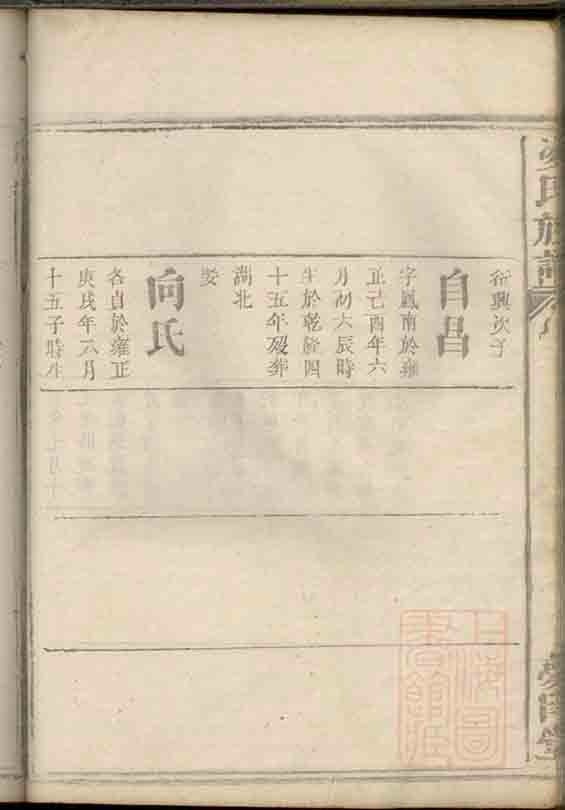 氏族譜
裕興次子
自昌
字鳳南於雍
正己酉年六
月初六辰時
生於乾隆四
十五年歿葬
湖北
娶
向氏
各貞於雍正
庚戌年六月
十五子時生
上海圖
書館藏